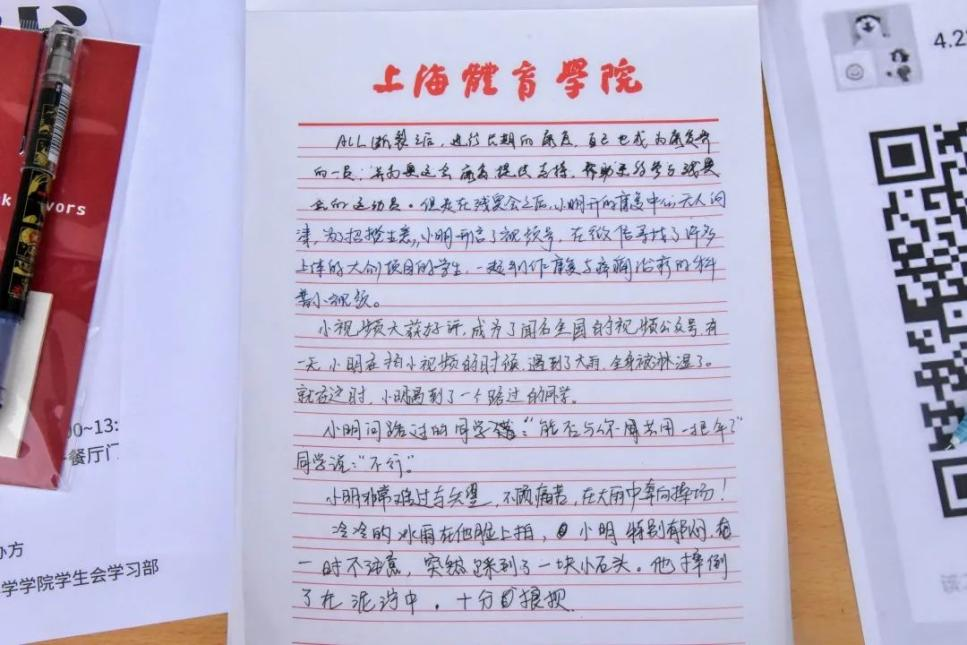 上海體育學院
ALL断裂之后，进行长期的康复，自己也成为康复师
的一员，并为奥运会康复提供支持，帮助更多参与残奥
会的运动员。但是在残奥会之后，小明开的康复中心无人问
津，为了招揽生意，小明开启了视频号，在微信寻找了许多
上体的大创项目的学生，一起制作康复与疼痛治疗的科
普小视频。
小视频大获好评，成为了闻名全国的视频公众号，有
一天，小明在拍小视频的时候，遇到了大雨，全身被淋湿了。
就在这时，小明遇到了一个路过的同学。
小明问路过的同学：“能否与你一同共用一把伞？”
同学说：“不行”。
小明非常难过与失望，不顾痛苦，在大雨中奔向操场！
冷冷的冰雨在他脸上拍，小明特别郁闷，在
一时不注意，突然踩到了一块小石头。他摔倒
了在泥泞中，十分狼狈
vors
00~13:
餐厅门
办方
学学院学生会学习部
4.2